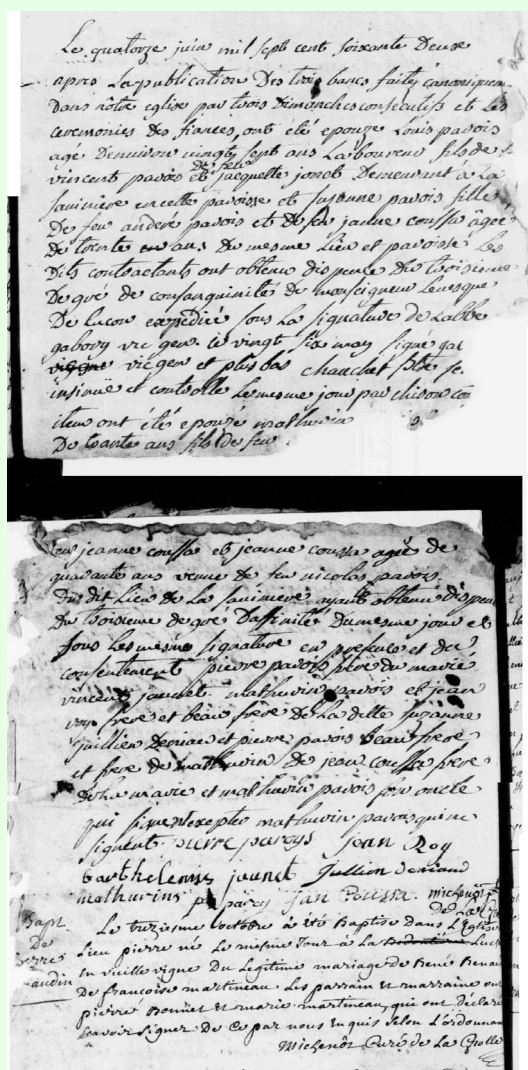 Le quatorze juin mil sept cent soixante Deuse
apres La publication Des trois bancs faitty canoniquem
Dans notre eglise par trois Dimanches consecutifs et Les
ceremonies Des fiances, ont eté epouze Louis pavois
agé Denviron vingt sept ans Laboureur fils de
vincent pavois et De feu jacquette jonet Demeurant a La
faviniere en cette paroisse et suzanne pavois fille
De feu andere pavois et De feu janne coussa âgee
De trente ans De mesme Lieu et paroisse Les
Dits contractants ont obtenu dispence Du troisieme
De gré de consanguinité De monseigneur Leveque
De Lucon expédiée sous La signature De Labbe
gabory vic gen. le vingt six may signé gab
vic gen et plus bas chauchet
insinué et controlle Le mesme jour par chison con
iteu ont étés epouzé mathurin
De trante ans fils De feu
feu jeanne coussa et jeanne coussa agée de
quarante ans venue De feu nicolas pavois
Du dit Lieu De La faviniere ayant obtenu Dispen
Du troisieme De gré Daffinité Du mesme jour et
sous Les mesme signature en presence et du
consentement pierre pavois frere Du marié
vincent jaunet mathurin pavois et jean
roy frere et beau frere De La Ditte suzanne
jullien Deniaud et pierre pavois beau frere
et frere De mathurin De jean coussa frere
De La mariee et mathurin pavois son oncle
qui signent excepte mathurin pavois qui ne
signent pierre paroys jean Roy
barthelemy jaunet Jullien deniaud
mathurins p paroy jan Coussa michenot
De La
Bapt
De
pierre
Le treziesme octobre à été Baptise dans L'Eglise
Lieu pierre né Le mesme Jour à La
En vieille vigne Du Legitime mariage de René Renau
De francoise martineau. Les parrain et marraine on
pierre Bonnet et marie martineau, qui ont Declare
scavoir signer De Ce par nous Enquis selon L'ordonnan
Michenot Curé De La Grolle